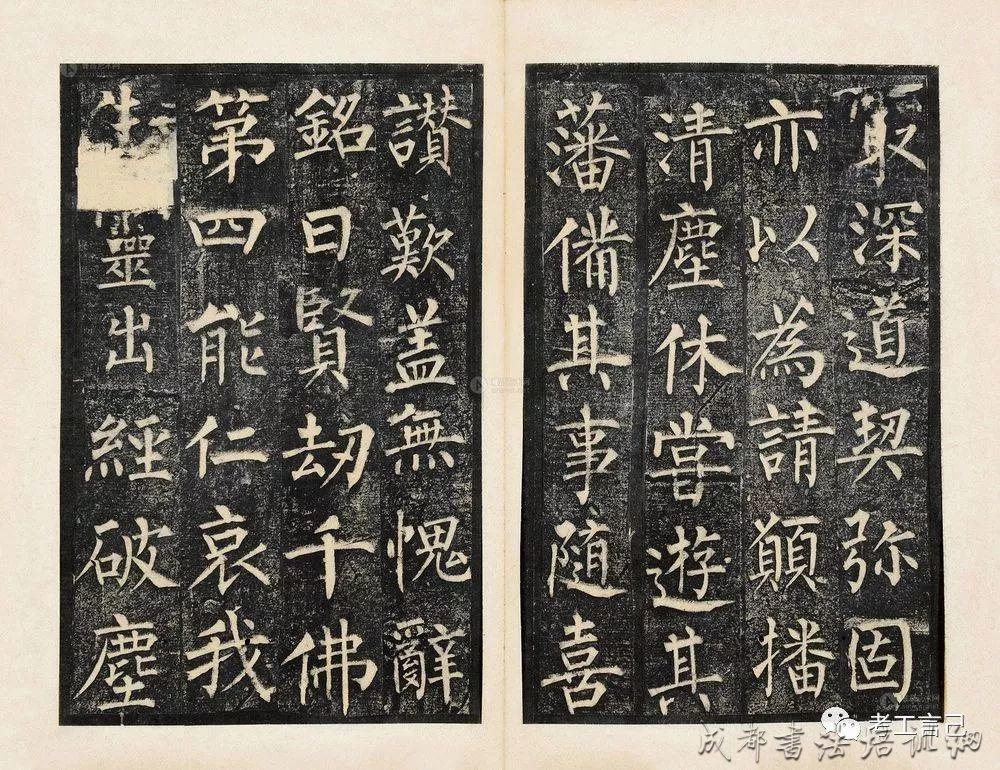 冣深道契弥固
亦以為請願播
清塵休甞遊其
藩備其事隨喜
讃歎盖無愧辭
銘曰賢劫千佛
第四能仁哀我
生靈出經破塵
考工言己
成都書法培訓網